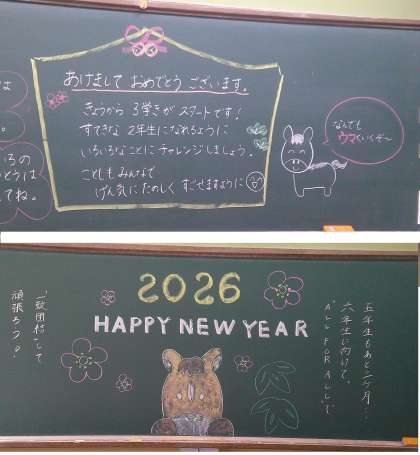 あけまして おめでとう ございます。
きょうから 3学きが スタートです！
すてきな 2年生になれるように
いろいろなことにチャレンジしましょう。
ことしも みんなで
げん気に たのしく すごせますように
なんでも
ウマくいくぞ～
2026
HAPPY NEW YEAR
五年生もあと三ヶ月…
六年生に向けて、
"ALL FOR ALL"で
"一致団結"して
頑張ろう。